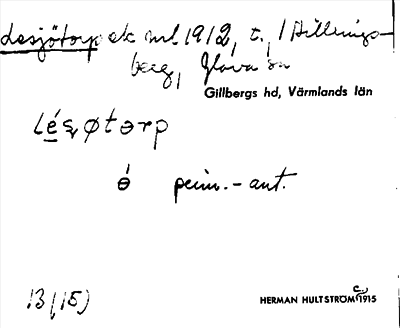 Lesjötorp ek ml 1912, t. / Hillrings-
berg, Glava sn
Gillbergs hd, Värmlands län
Lésøtorp
é penn.-ant.
13 (15)
HERMAN HULTSTRÖM 1915